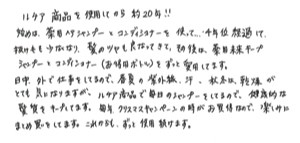 ルケア商品を使用してから約20年!!
始めは、薬用ヘアシャンプーとコンディショナーを使って…半年位経過して、
抜け毛も少なくなり、髪のツヤも良くなってきて、その後は、薬日本モデ
シャンプーとコンディショナー(お得用ボトル)をずっと愛用してます。
日中、外で仕事をしてるので、春夏の紫外線、汗、秋冬は、乾燥が
とても気になりますが、ルケア商品で毎日のシャンプーをしてるので、健康的な
髪質をキープしてます。毎年クリスマスキャンペーンの時がお買得なので、楽しみに
まとめ買いをしてます。これからも、ずっと使用続けます。